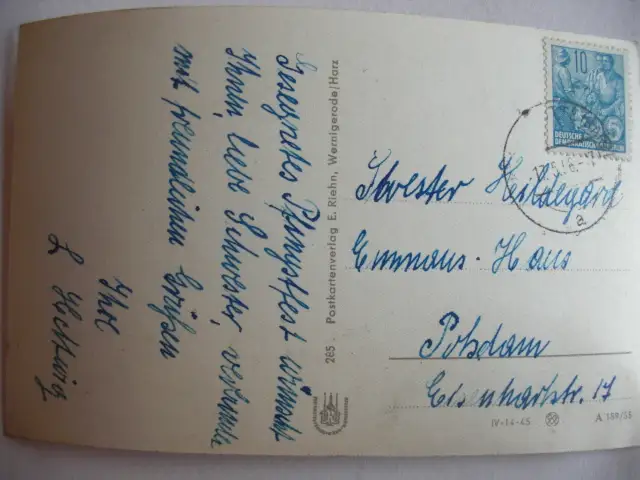 Gesegnetes Pfingstfest wünscht
Ihnen, liebe Schwester,
mit freundlichen Grüßen
Ihre
L. Hertwig
265 . Postkartenverlag E. Riehn, Wernigerode/Harz
10
DEUTSCHE
DEMOKRATISCHE
5
a
Schwester Hildegard
Emmaus-Haus
Potsdam
Eisenhartstr. 17
IV-14-45
A 189/55